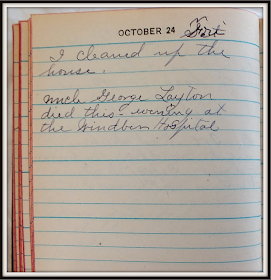 OCTOBER 24 Fri
I cleaned up the
house.
Uncle George Layton
died this evening at
the Windber Hospital